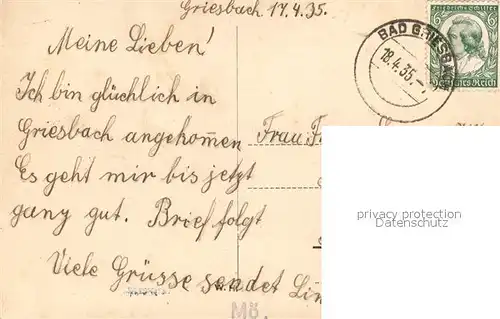 Griesbach 17.4.35.
BAD GRIESBA
18.4.35.-
Friedrich Schiller
6
Deutsches Reich
Meine Lieben!
Ich bin glücklich in
Griesbach angekom̅en
Es geht mir bis jetzt
ganz gut. Brief folgt
Viele Grüsse sendet Lin
Frau F
privacy protection
Datenschutz
Mö.